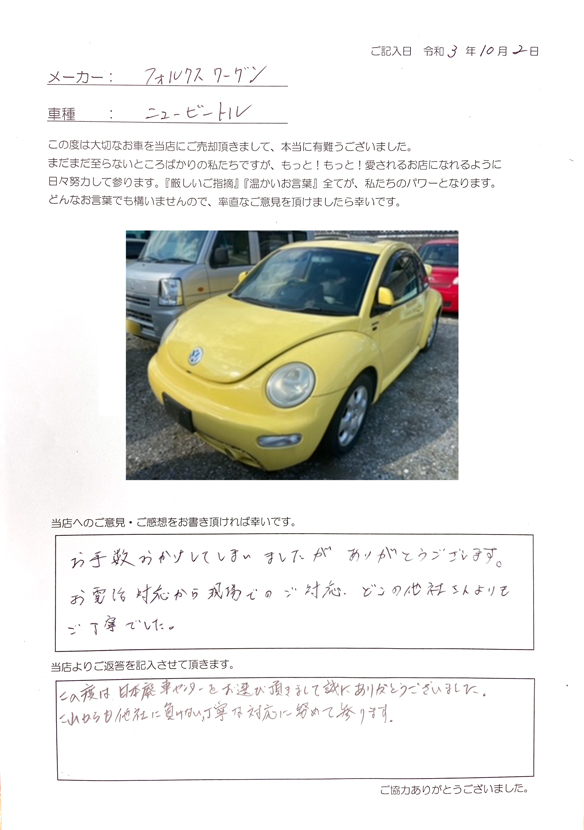 ご記入日 令和 3 年 10 月 2 日
メーカー： フォルクスワーゲン
車種 ： ニュービートル
この度は大切なお車を当店にご売却頂きまして、本当に有難うございました。
まだまだ至らないところばかりの私たちですが、もっと！もっと！愛されるお店になれるように
日々努力して参ります。『厳しいご指摘』『温かいお言葉』全てが、私たちのパワーとなります。
どんなお言葉でも構いませんので、率直なご意見を頂けましたら幸いです。
当店へのご意見・ご感想をお書き頂ければ幸いです。
お手数おかけしてしまいましたが ありがとうございます。
お電話対応から現場でのご対応、どこの他社さんよりも
ご丁寧でした。
当店よりご返答を記入させて頂きます。
この度は日本廃車センターをお選び頂きまして誠にありがとうございました。
これからも他社に負けない丁寧な対応に努めて参ります。
ご協力ありがとうございました。